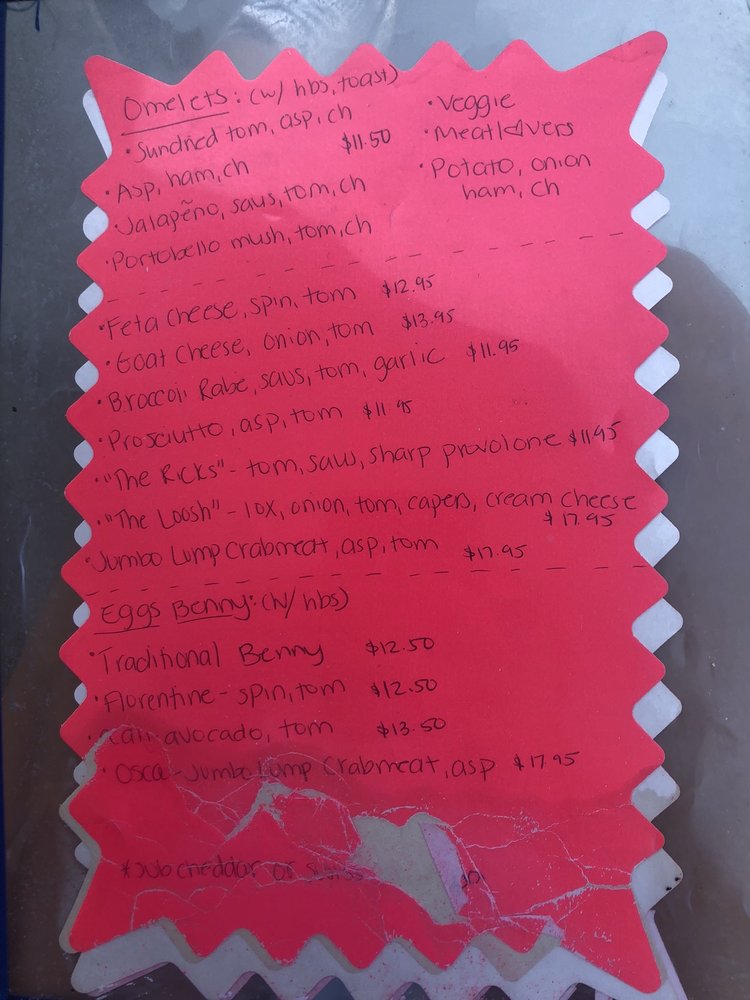 Omelets: (w/ hbs, toast)
• Sundried tom, asp, ch
$11.50
• Asp, ham, ch
• Jalapeño, saus, tom, ch
• Portobello mush, tom, ch
• Veggie
• Meatl♡vers
• Potato, onion
ham, ch
• Feta Cheese, spin, tom $12.95
• Goat Cheese, onion, tom $13.95
• Broccoli Rabe, saus, tom, garlic $11.95
• Prosciutto, asp, tom $11.95
• "The Ricks" - tom, saus, sharp provolone $11.95
• "The Loosh" - lox, onion, tom, capers, cream cheese
$17.95
• Jumbo Lump Crabmeat, asp, tom $17.95
Eggs Benny: (w/ hbs)
• Traditional Benny $12.50
• Florentine - spin, tom $12.50
avocado, tom $13.50
• Osca - Jumbo Lump Crabmeat, asp $17.95
* sub cheddar or